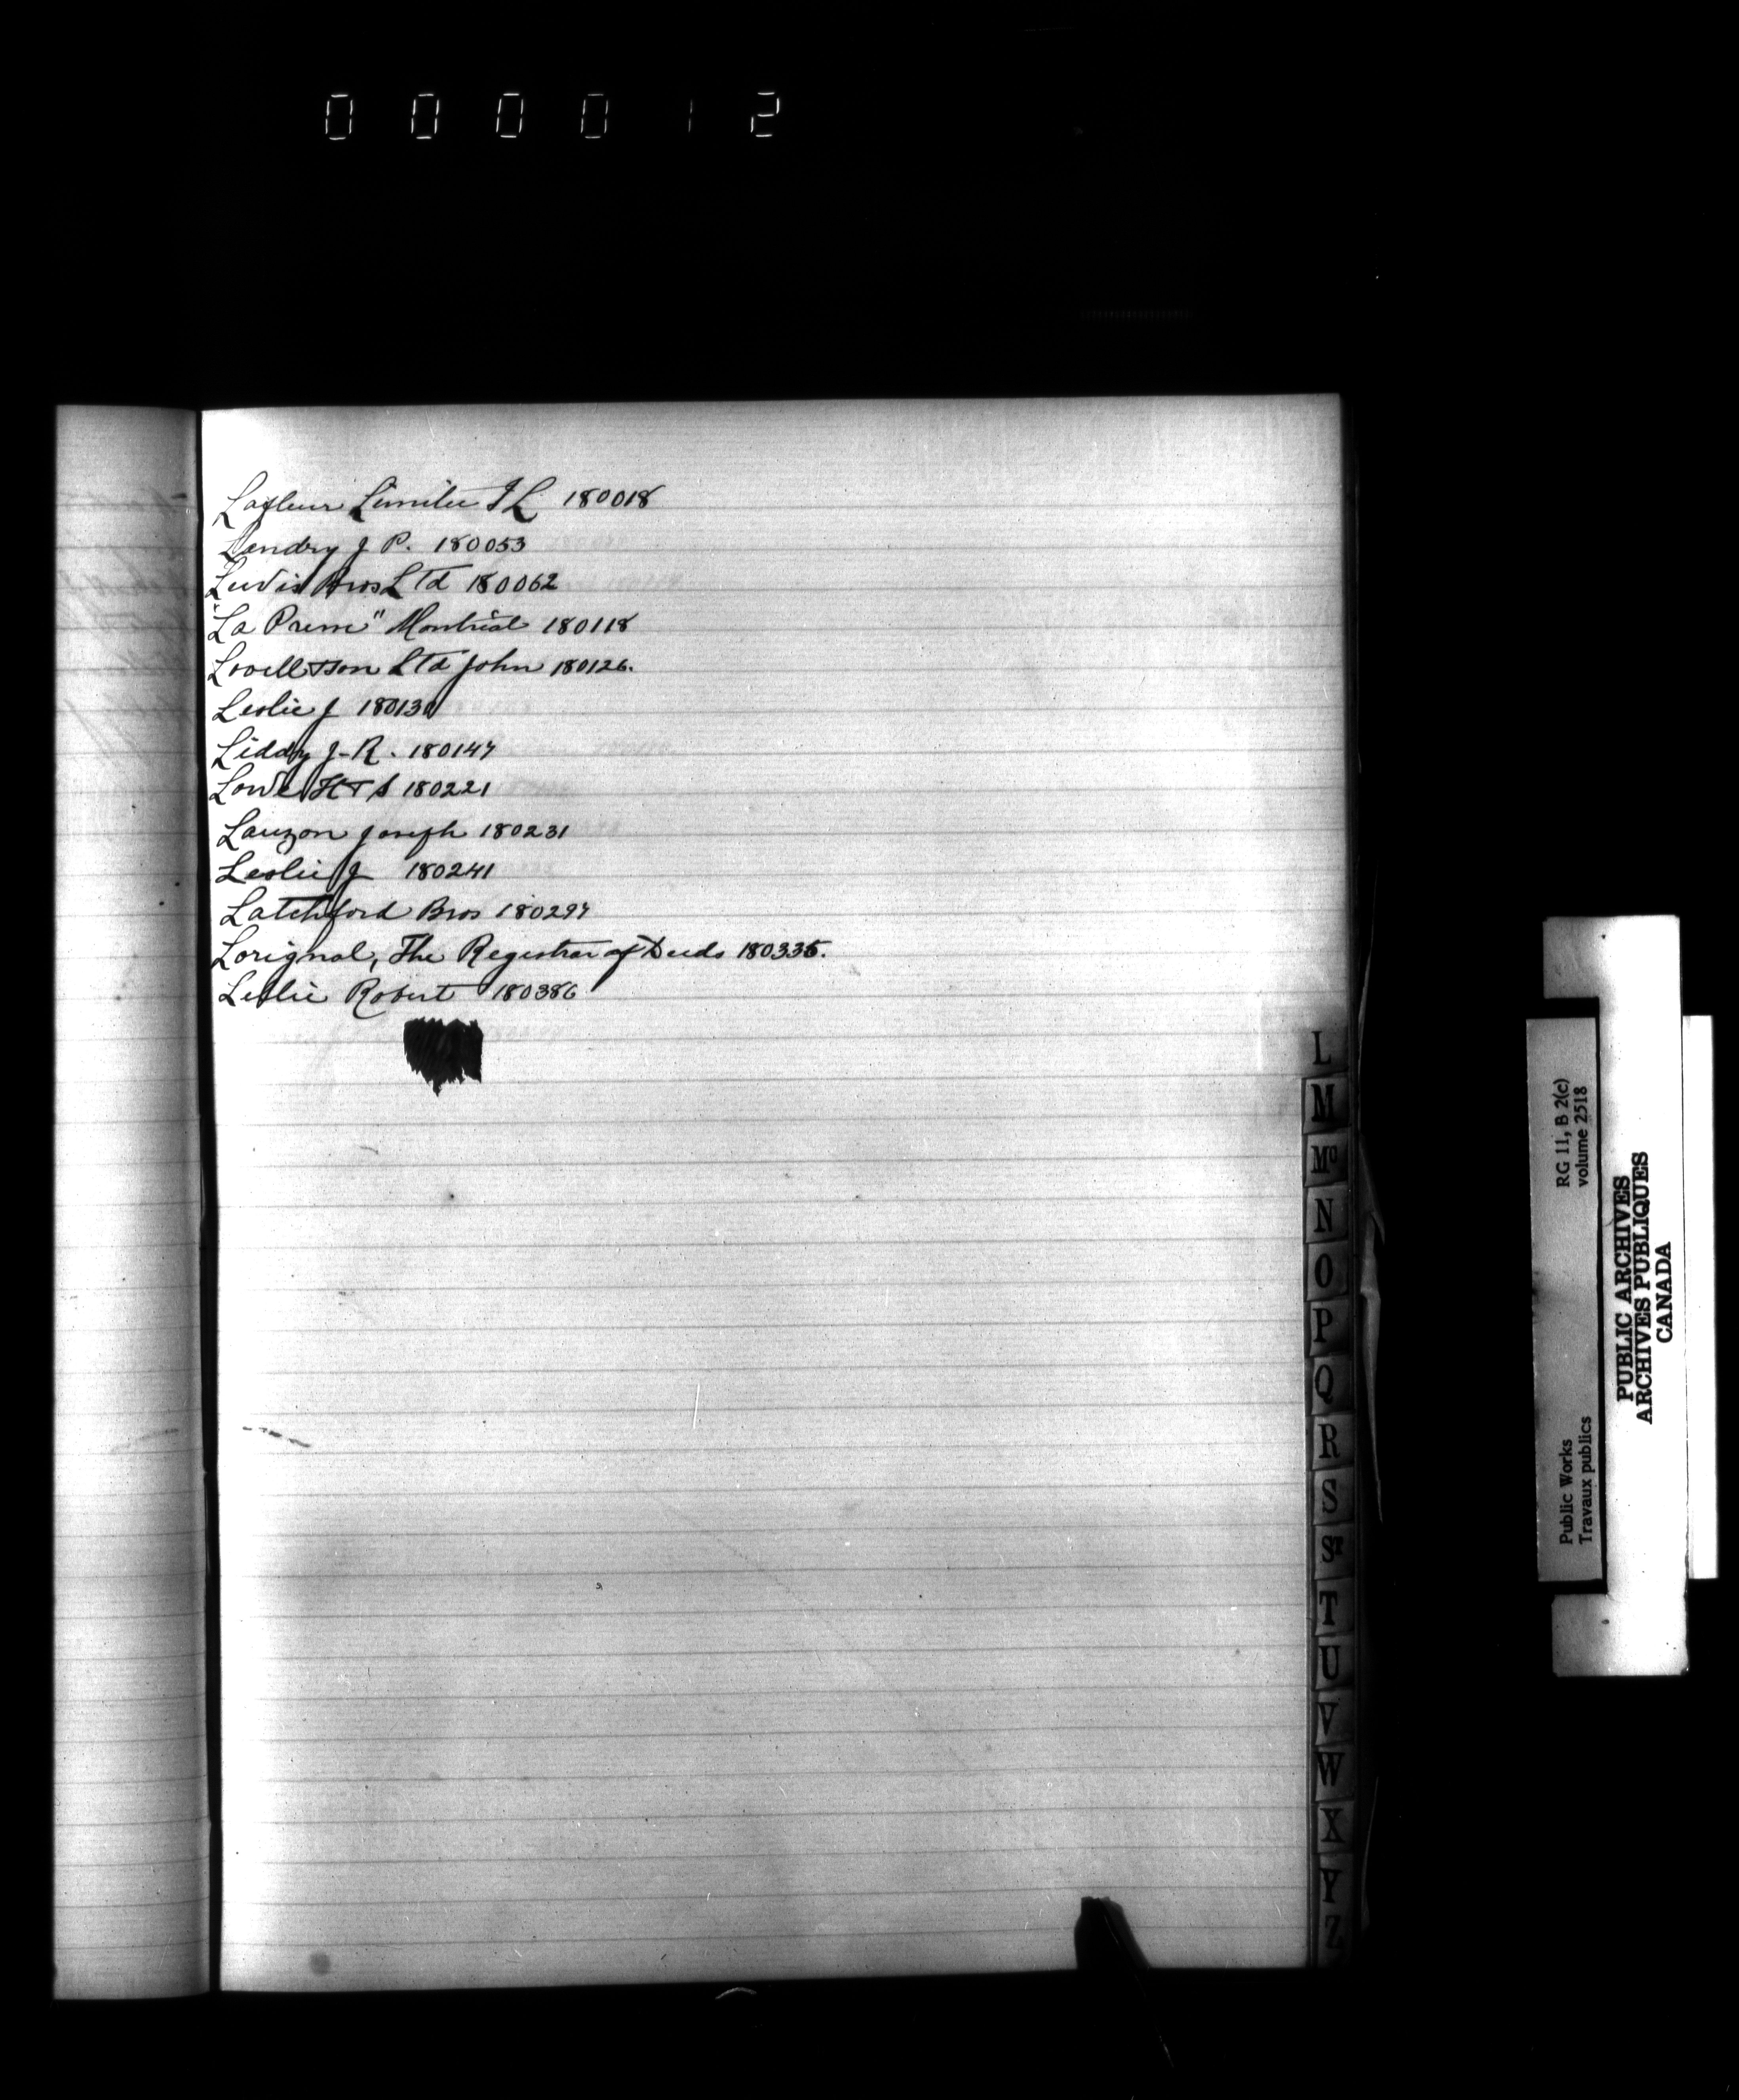 000012
Lafleur Limitee J L 180018
Landry J P. 180053
Lewis Bros Ltd 180062
"La Presse" Montreal 180118
Lovell & Son Ltd John 180126.
Leslie J 180130
Liddy J-R. 180147
Lowe H T S 180221
Lauzon Joseph 180231
Leslie J 180241
Latchford Bros 180297
Lorignal, The Registrar of Deeds 180335.
Leslie Robert 180386
L
M
Mc
N
O
P
Q
R
S
ST
T
U
V
W
X
Y
Z
Public Works RG 11, B 2(c)
Travaux publics volume 2518
PUBLIC ARCHIVES
ARCHIVES PUBLIQUES
CANADA